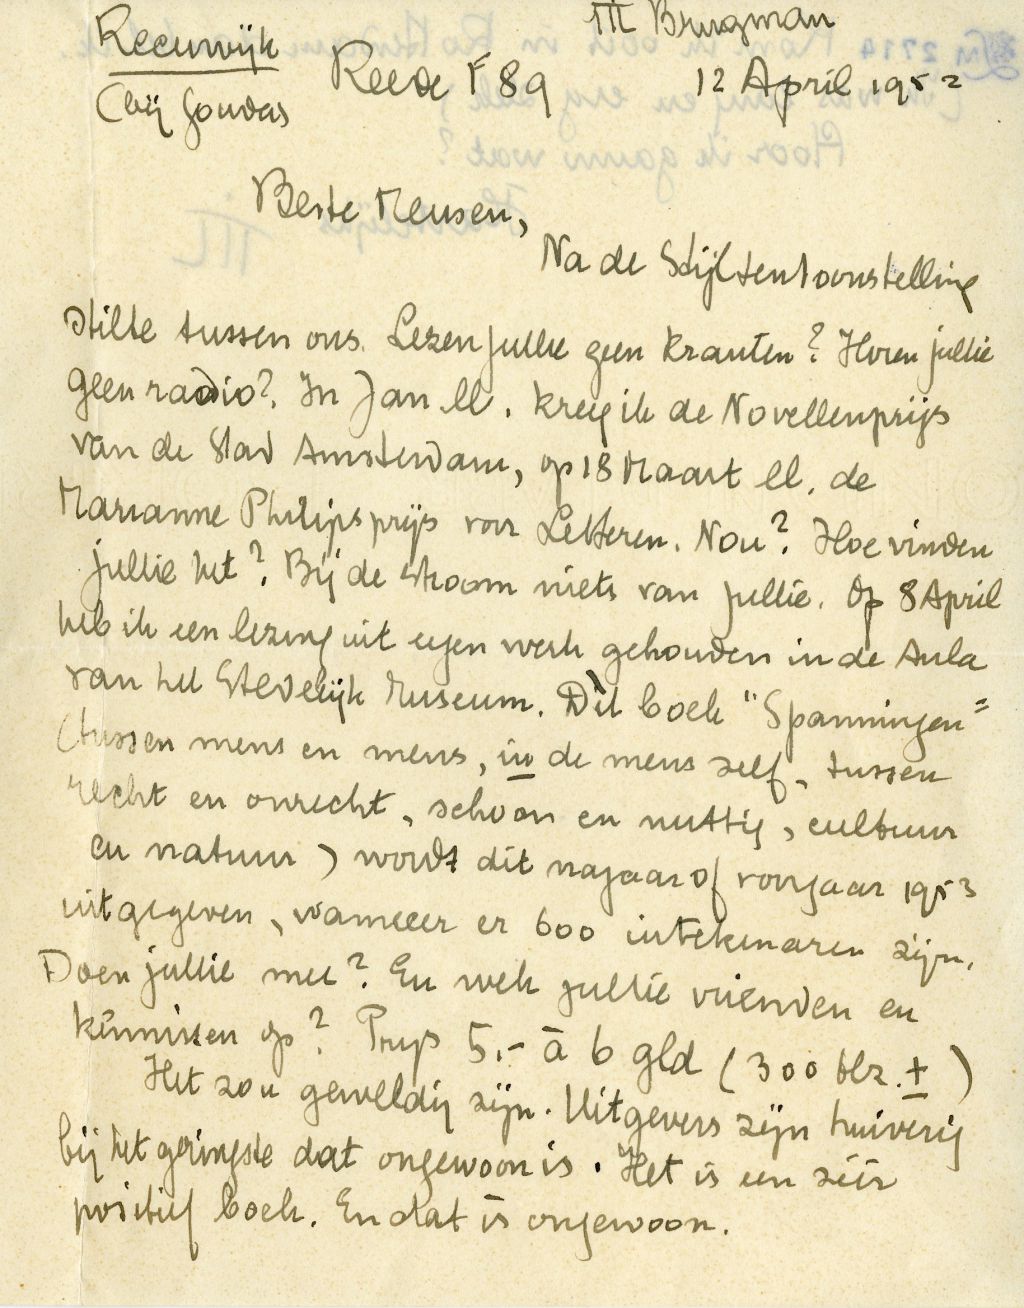 Reeuwijk
(bij Gouda)
Reede F 89
Til Brugman
12 April 1952
Beste Mensen,
Na de Stijltentoonstelling
stilte tussen ons. Lezen jullie geen kranten? Horen jullie
geen radio? In Jan ll. kreeg ik de Novellenprijs
van de Stad Amsterdam, op 18 Maart ll. de
Marianne Philipsprijs voor Letteren. Nou? Hoe vinden
jullie het? Bij de stroom niets van jullie. Op 8 April
heb ik een lezing uit eigen werk gehouden in de Aula
van het Stedelijk Museum. Dit boek "Spanningen"
(tussen mens en mens, in de mens zelf, tussen
recht en onrecht, schoon en nuttig, cultuur
en natuur) wordt dit najaar of voorjaar 1953
uitgegeven, wanneer er 600 intekenaren zijn.
Doen jullie mee? En wek jullie vrienden en
kennissen op? Prijs 5.- à 6 gld (300 blz. ±)
Het zou geweldig zijn. Uitgevers zijn huiverig
bij het geringste dat ongewoon is. Het is een zéér
positief boek. En dat is ongewoon.